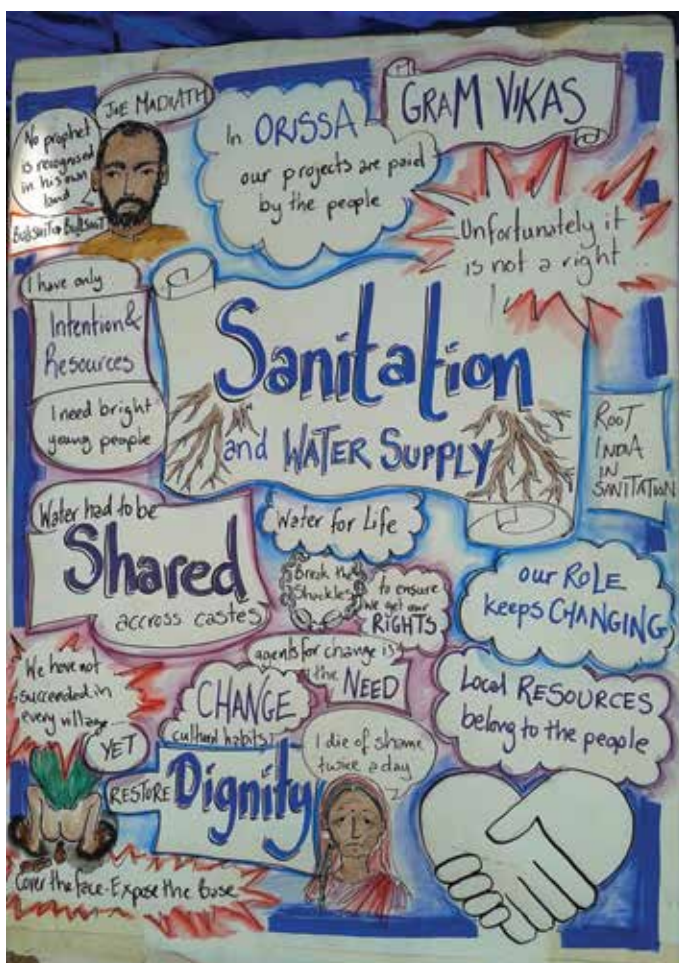 JOE MADIATH
No prophet
is recognised
in his own
land
In ORISSA
our projects are paid
by the people
GRAM VIKAS
Unfortunately it
is not a right...
!
I have only...
Intention &
Resources
I need bright
young people
Sanitation
and WATER SUPPLY
ROOT
INDIA
IN
SANITATION
Water had to be
Shared
accross castes
Water for Life
Break the
Shackles
to ensure
we get our
RIGHTS
our ROLE
keeps CHANGING
agents for change is
the NEED
We have not
succeeded in
every village...
YET
CHANGE
cultural habits!
Local RESOURCES
belong to the people
I die of shame
twice a day
RESTORE Dignity
Cover the face - Expose the base